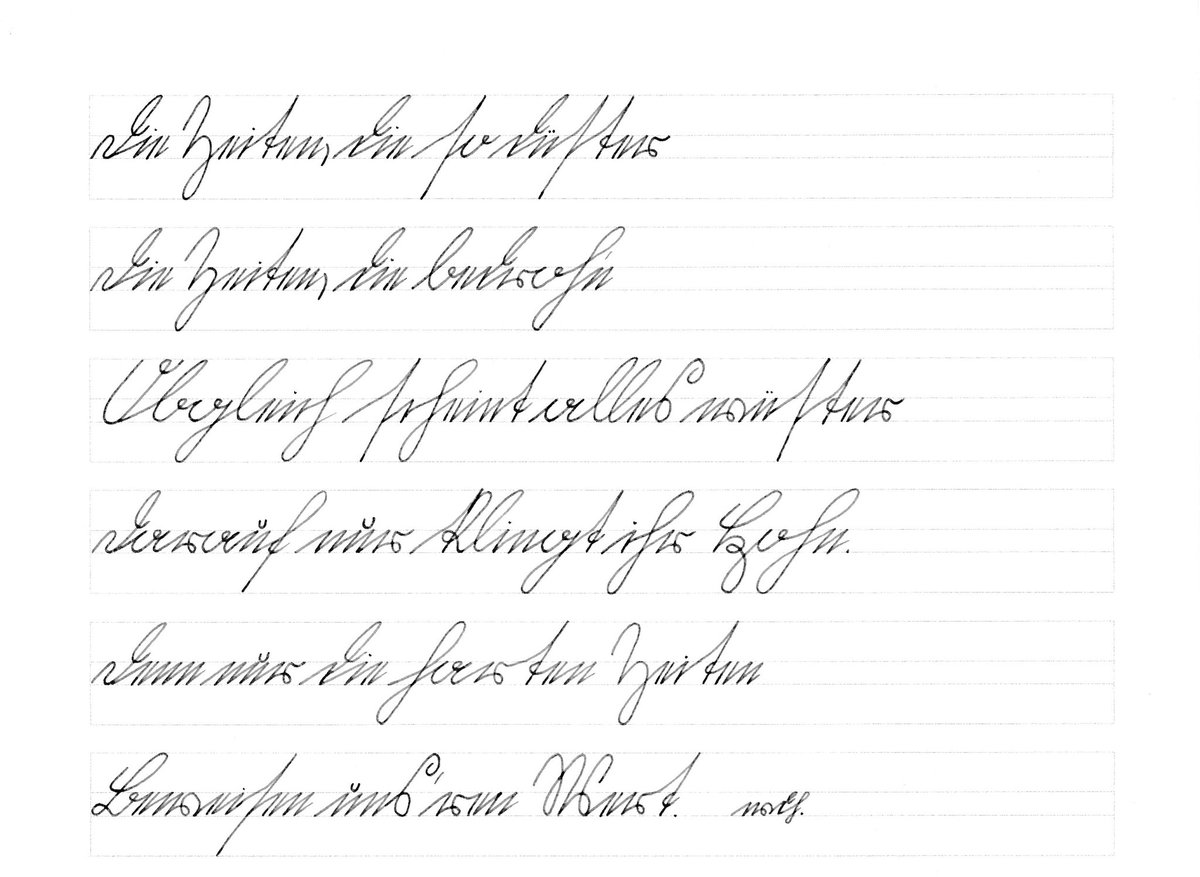 Die Zeiten, die so düster
Die Zeiten, die bedroh'n
Obgleich scheint alles wüster
Darauf nur klingt ihr Hohn.
Denn nur die harten Zeiten
Beweisen uns'ren Wert.